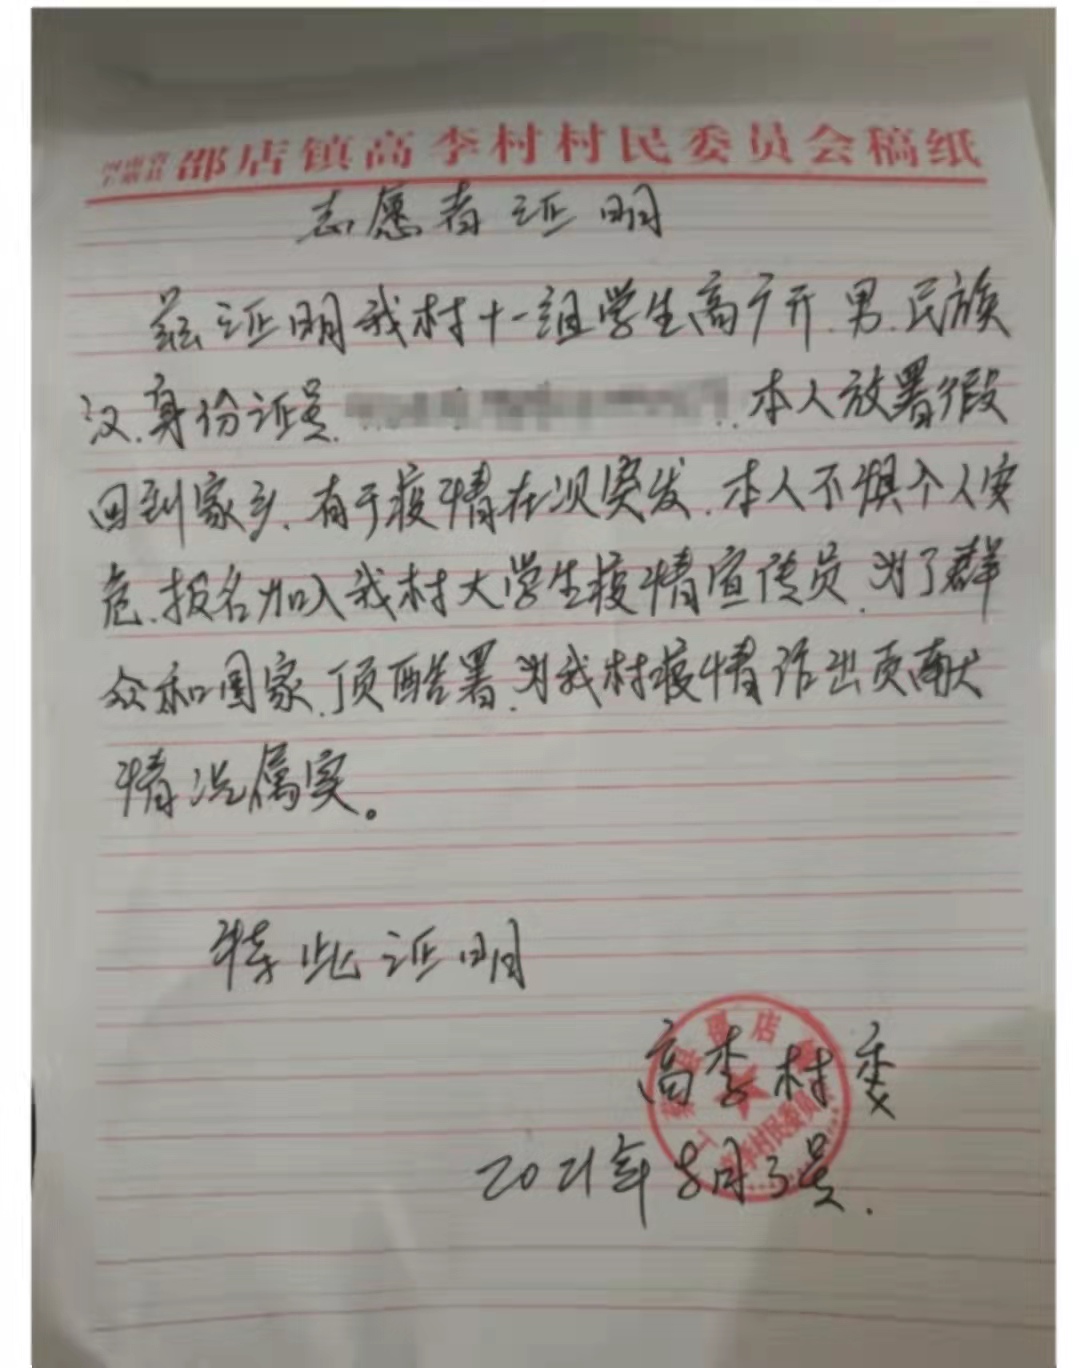 河南省
上蔡县 邵店镇高李村村民委员会稿纸
志愿者证明
兹证明我村十一组学生高广开.男.民族
汉.身份证号.本人放署假
回到家乡.有于疫情在次突发.本人不惧个人安
危.报名加入我村大学生疫情宣传员.为了群
众和国家.顶酷署.为我村疫情活出贡献
情况属实。
特此证明
高李村委
2021年8月3号.